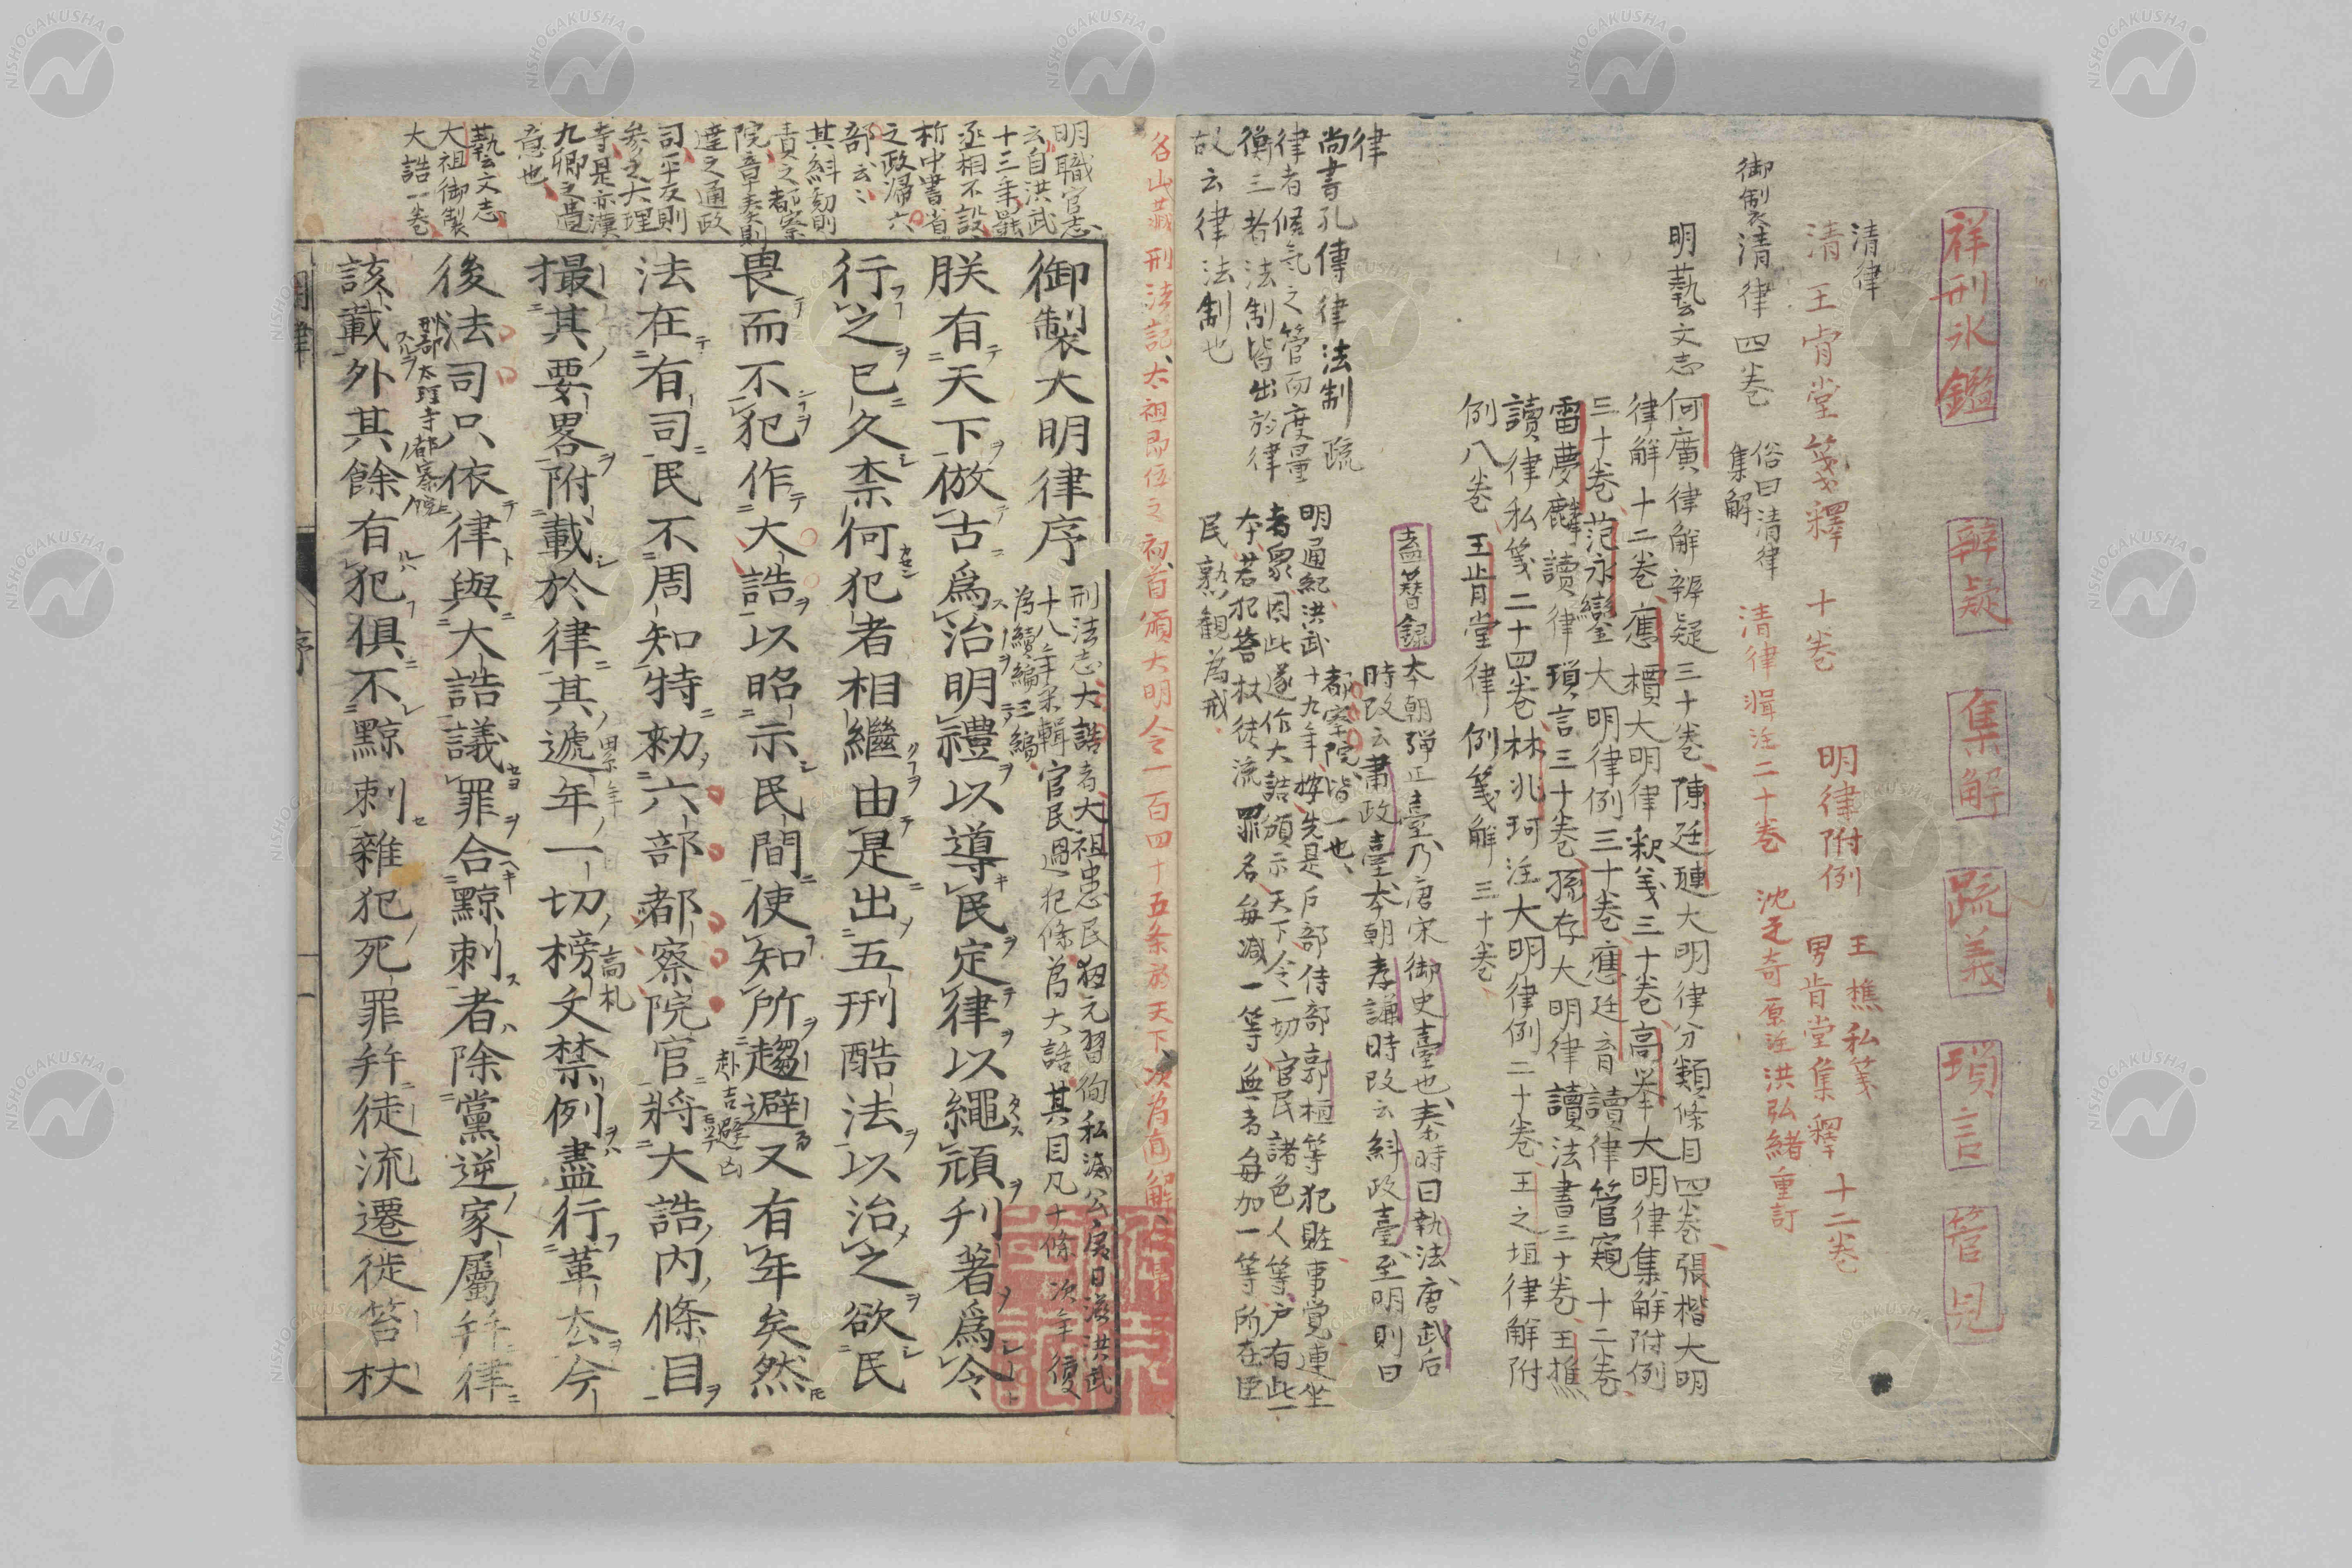 祥刑氷鑑 辨疑 集解 疏義 瑣言 管見
清律
清王肯堂箋釋 十巻 明律附例 王樵私箋
男肯堂集釋 十二巻
御製清律四巻 俗曰清律
集解
清律輯注二十巻 沈之奇原注 洪弘緒重訂
明藝文志 何廣律解辨疑三十巻 陳廷璉大明律分類條目四巻 張楷大明
律解十二巻 應檟大明律釈義三十巻 高挙大明律集解附例
三十巻 范永鑾大明律例三十巻 應廷育讀律管窺十二巻
雷夢麟讀律瑣言三十巻 孫存大明律讀法書三十巻 王樵
讀律私箋二十四巻 林兆珂注大明律例二十巻 王之垣律解附
例八巻 王肯堂律例箋解三十巻
盍簪録 本朝弾正臺乃唐宋御史臺也 秦時曰執法 唐武后
時改云肅政臺 本朝孝謙時改云糾政臺 至明則曰
都察院皆一也
律
尚書孔傳律法制 疏
律者候氣之管而度量
衡三者法制皆出於律
故云律法制也
明通紀洪武十九年 按先是戶部侍郎郭桓等犯賍事覚連坐
者衆因此遂作大誥頒示天下令一切官民諸色人等戶有此一
本若犯笞杖徒流罪名毎減一等無者毎加一等所在臣
民熟観為戒
名山蔵刑法記太祖即位之初首頒大明令一百四十五条為天下次為直解
明職官志
云自洪武
十三年罷
丞相不設
析中書省
之政歸六
部云〻
其糾劾則
責之都察
院章奏則
達之通政
司平反則
参之大理
寺是亦漢
九卿之遺
意也
藝文志
大祖御製
大誥一巻
御製大明律序
刑法志大誥者大祖患民狃元習徇私滅公戻日滋洪武
十八年采輯官民過犯條為大誥其目凡十條次年復
為續編三編
朕有天下倣古爲治明禮以導民定律以繩頑刋著爲令
行之已久柰何犯者相繼由是出五刑酷法以治之欲民
畏而不犯作大誥以昭示民間使知所趨避又有年矣然
赴吉避凶
法在有司民不周知特勑六部都察院官將大誥内條目
撮其要畧附載於律其遞年一切榜文禁例盡行革去今
累年
高札
後法司只依律與大誥議罪合黥刺者除黨逆家屬幷律
刑部大理寺都察院
該載外其餘有犯俱不黥刺雜犯死罪幷徒流遷徙笞杖
明律
序
一
NISHOGAKUSHA